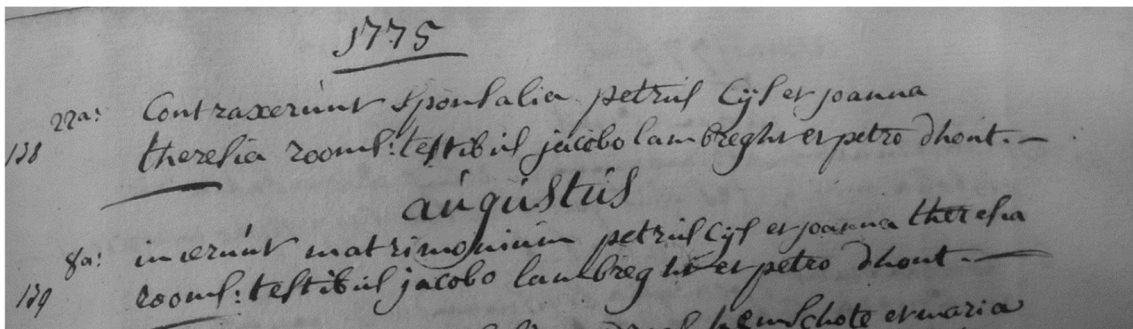 1775
22a: Contraxerunt sponsalia petrus Cijs et joanna
138 theresia rooms: testibus jacobo lambreght et petro dhont. —
augustus
8a: inierunt matrimonium petrus Cijs et joanna theresia
139 rooms: testibus jacobo lambreght et petro dhont. —
schote et maria